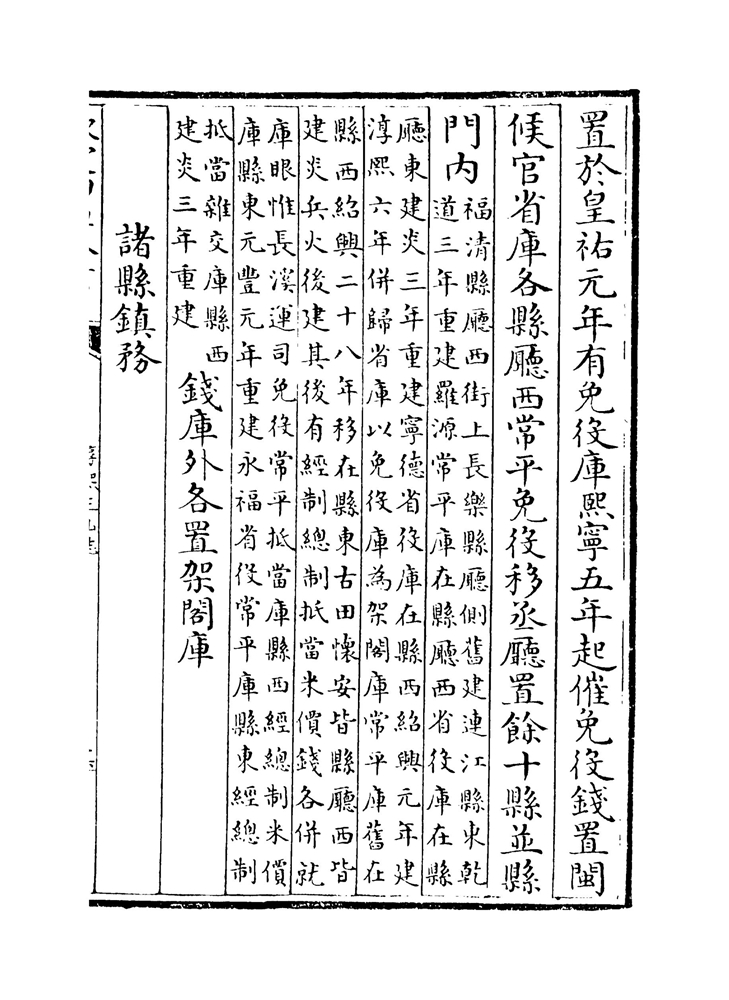 置於皇祐元年有免役庫熙寧五年起催免役錢置閩
候官省庫各縣廳西常平免役移丞廳置餘十縣並縣
門内
福清縣廳西街上長樂縣廳側舊建連江縣東乾
道三年重建羅源常平庫在縣廳西省役庫在縣
廳東建炎三年重建寧德省役庫在縣西紹興元年建
淳熙六年併歸省庫以免役庫為架閣庫常平庫舊在
縣西紹興二十八年移在縣東古田懷安皆縣廳西皆
建炎兵火後建其後有經制總制抵當米價錢各併就
庫眼惟長溪運司免役常平抵當庫縣西經總制米價
庫縣東元豐元年重建永福省役常平庫縣東經總制
抵當雜交庫縣西
建炎三年重建
錢庫外各置架閣庫
諸縣鎮務